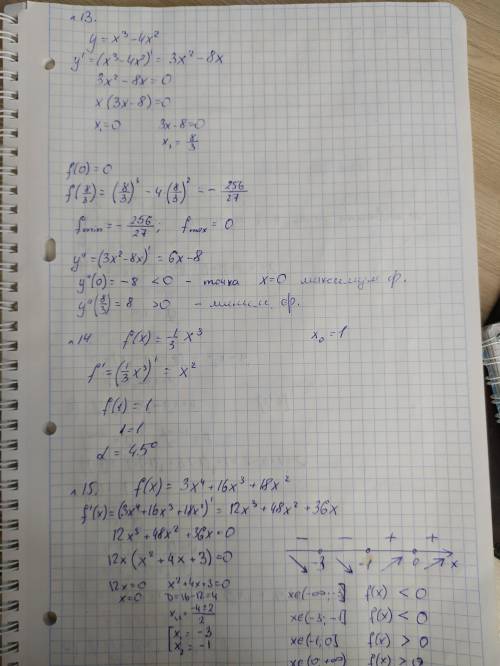 n 13.
y = x³ - 4x²
y' = (x³ - 4x²)' = 3x² - 8x
3x² - 8x = 0
x(3x - 8) = 0
x₁ = 0 3x - 8 = 0
x₁ = 8/3
f(0) = 0
f(8/3) = (8/3)³ - 4(8/3)² = - 256/27
f min = - 256/27 ; f max = 0
y'' = (3x² - 8x)' = 6x - 8
y''(0) = -8 < 0 - точка x=0 максимум ф.
y''(8/3) = 8 > 0 - миним. ф.
n 14 f(x) = 1/3 x³ x₀ = 1
f' = (1/3 x³)' = x²
f(1) = 1
1 = 1
α = 45°
n 15. f(x) = 3x⁴ + 16x³ + 18x²
f'(x) = (3x⁴ + 16x³ + 18x²)' = 12x³ + 48x² + 36x
12x³ + 48x² + 36x = 0
12x(x² + 4x + 3) = 0
12x = 0 x² + 4x + 3 = 0
x = 0 D = 16 - 12 = 4
x₁,₂ = -4±2/2
x₁ = -3
x₂ = -1
- - + +
-3 -1 0 x
x∈(-∞; -3] f(x) < 0
x∈(-3; -1] f(x) < 0
x∈(-1; 0] f(x) > 0
x∈(0; +∞) f(x) > 0